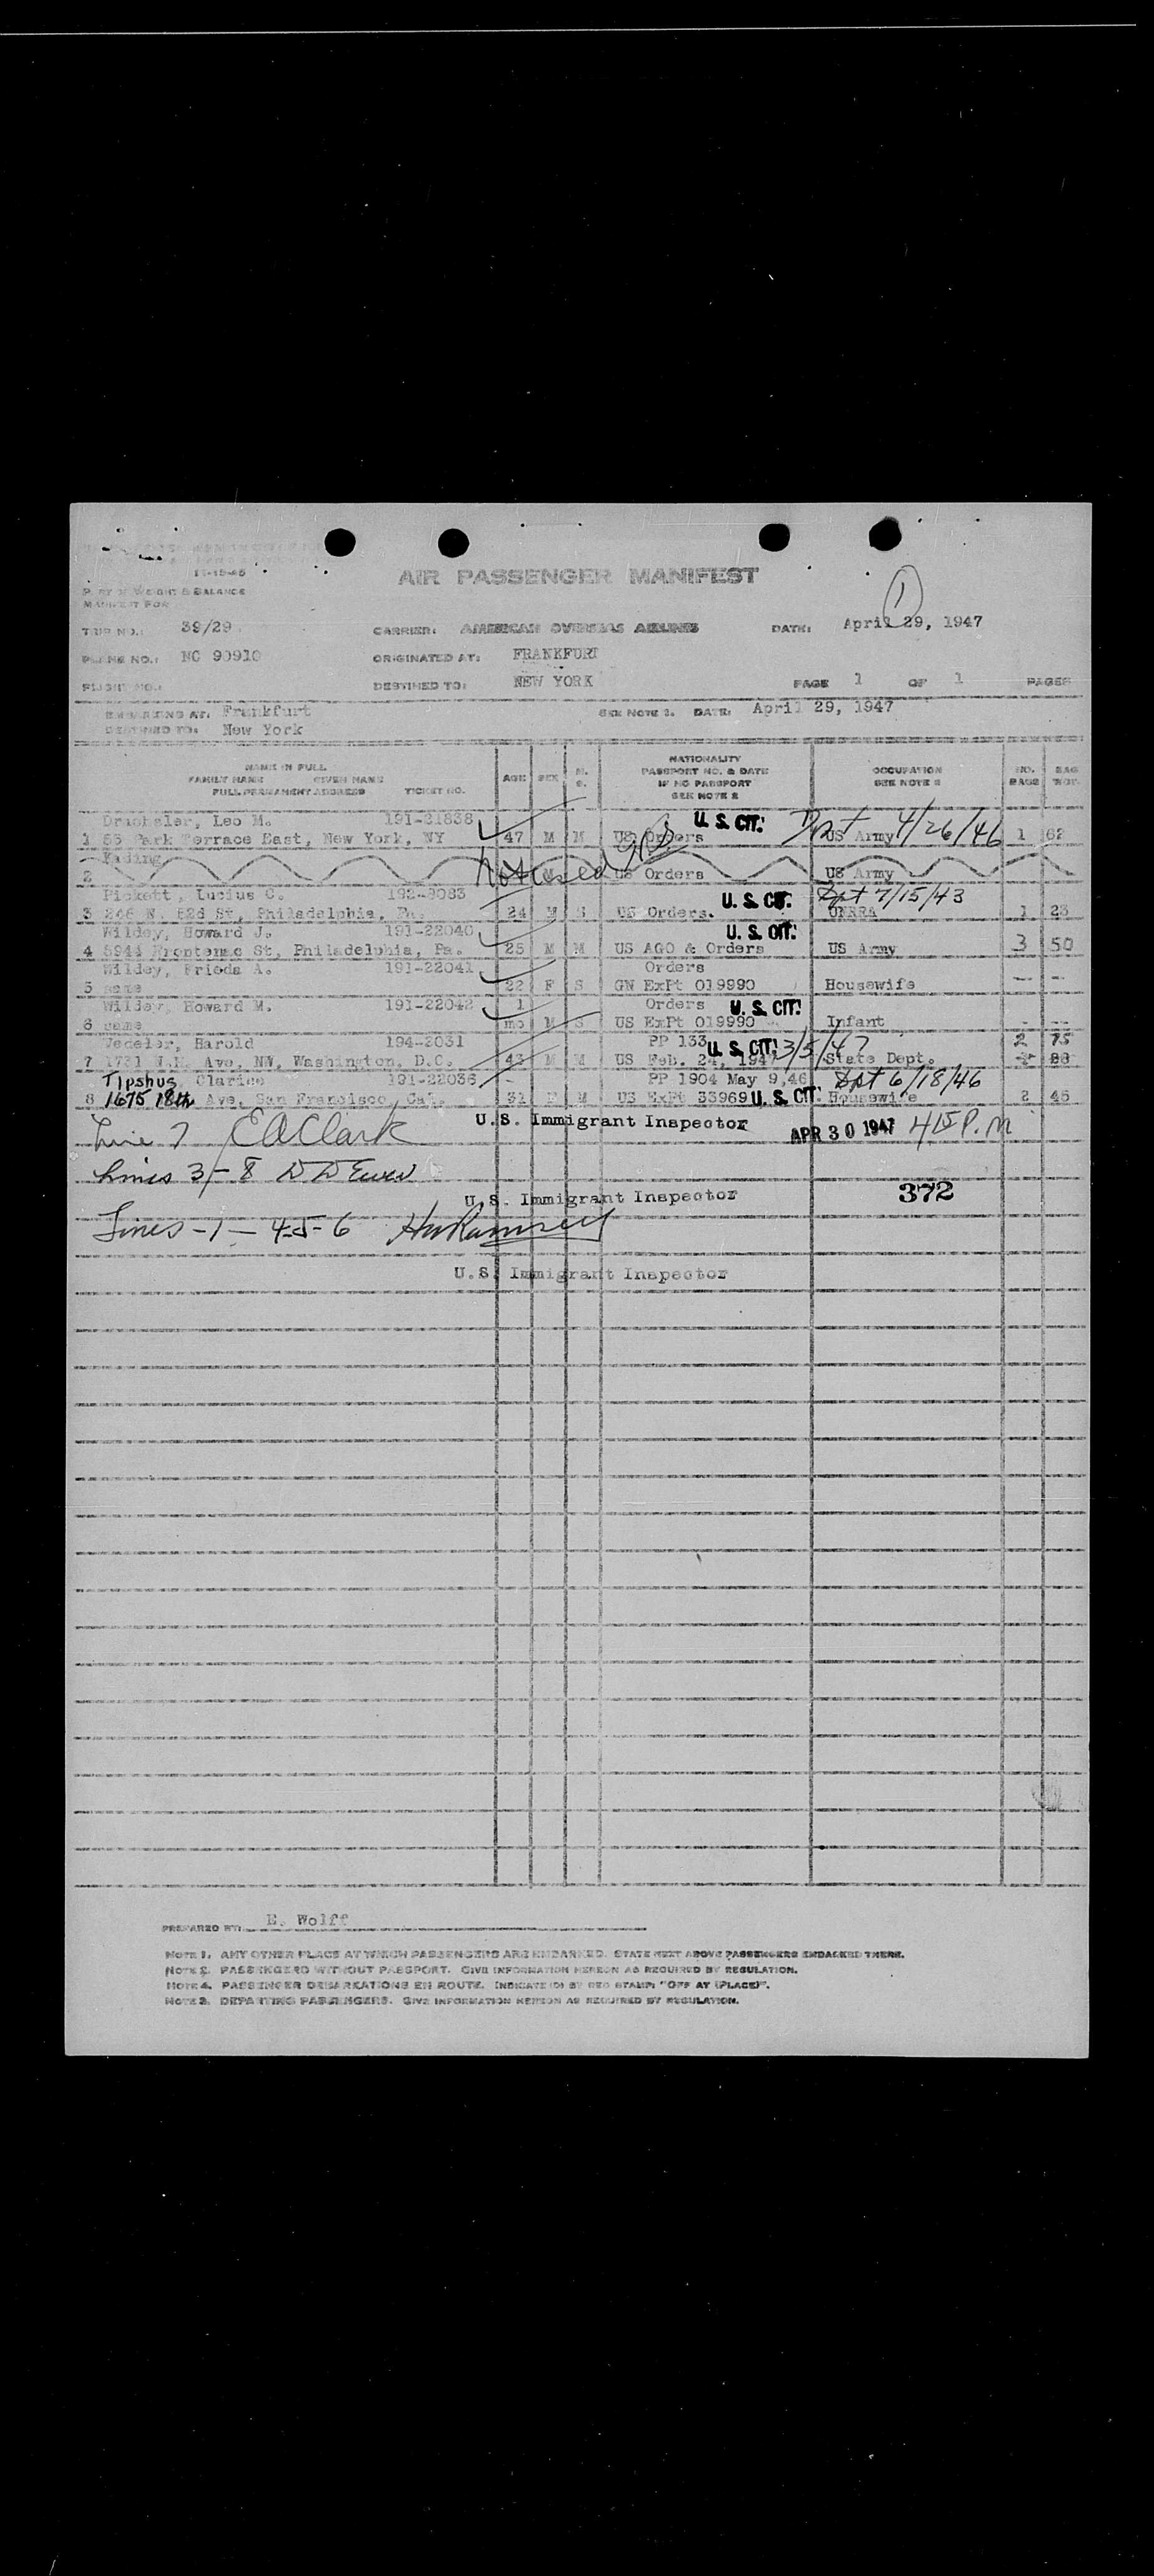 11-15-45
PART OF WEIGHT & BALANCE
MANIFEST FOR
AIR PASSENGER MANIFEST
1
TRIP NO.: 39/29 CARRIER: AMERICAN OVERSEAS AIRLINES DATE: April 29, 1947
PLANE NO.: NC 90910 ORIGINATED AT: FRANKFURT
FLIGHT NO.: DESTINED TO: NEW YORK PAGE 1 OF 1 PAGES
EMBARKING AT: Frankfurt SEE NOTE 2. DATE: April 29, 1947
DESTINED TO: New York
NAME IN FULL
FAMILY NAME GIVEN NAME
FULL PERMANENT ADDRESS TICKET NO. AGE SEX M. S. NATIONALITY PASSPORT NO. & DATE IF NO PASSPORT SEE NOTE 2 OCCUPATION SEE NOTE 2 NO. BAGS BAG WGT.
Drachsler, Leo M. 191-21838 U. S. CIT.
1 55 Park Terrace East, New York, NY 47 M M US Orders Dpt US Army 4/26/46 1 62
Kading
2 Not used US Orders US Army
Pickett, Lucius C. 192-8083 U. S. CIT. Dpt 7/15/43
3 246 N. 52d St, Philadelphia, Pa. 24 M S US Orders. UNRRA 1 23
Wildey, Howard J. 191-22040 U. S. CIT.
4 5944 Frontenac St, Philadelphia, Pa. 25 M M US AGO & Orders US Army 3 50
Wildey, Frieda A. 191-22041 Orders
5 same 22 F S GN ExPt 019990 Housewife -- --
Wildey, Howard M. 191-22042 1 Orders U. S. CIT.
6 same mo M S US ExPt 019990 Infant - --
Wedeler, Harold 194-2031 PP 133 U. S. CIT. 3/5/47 2 75
7 1731 N.H. Ave, NW, Washington, D.C. 43 M M US Feb. 24, 1947 State Dept. 88
Tipshus Clarice 191-22036 - PP 1904 May 9,46 Dpt 6/18/46
8 1675 18th Ave, San Francisco, Cal. 31 F M US ExPt 33969 U. S. CIT. Housewife 2 45
Line 7 E A Clark U.S. Immigrant Inspector APR 30 1947 415 P.M
Lines 3-8 D D Ewen
U.S. Immigrant Inspector 372
Lines -1- 4-5-6 HW Ramsey
U.S. Immigrant Inspector
PREPARED BY: E. Wolff
NOTE 1. ANY OTHER PLACE AT WHICH PASSENGERS ARE EMBARKED. STATE NEXT ABOVE PASSENGERS EMBARKED THERE.
NOTE 2. PASSENGERS WITHOUT PASSPORT. GIVE INFORMATION HEREON AS REQUIRED BY REGULATION.
NOTE 4. PASSENGER DEBARKATIONS EN ROUTE. INDICATE (D) BY RED STAMP: "OFF AT (PLACE)".
NOTE 3. DEPARTING PASSENGERS. GIVE INFORMATION HEREON AS REQUIRED BY REGULATION.